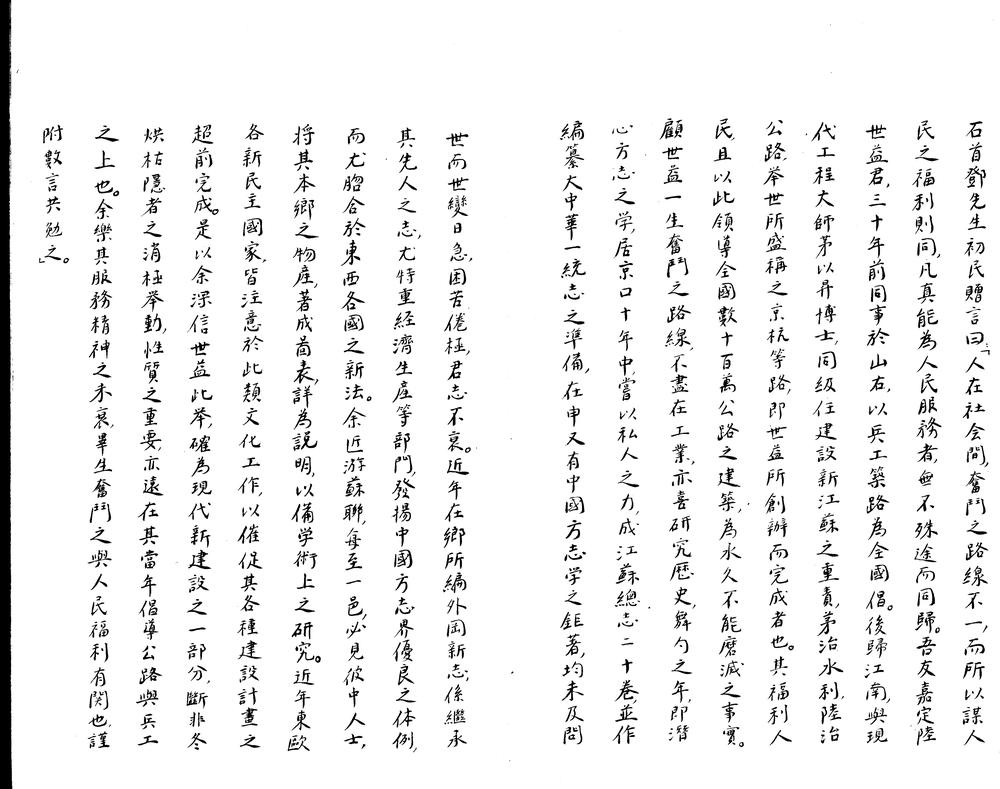 石首鄧先生初民贈言曰:「人在社会間,奮鬥之路線不一,而所以謀人
民之福利則同,凡真能為人民服務者,無不殊途而同歸。吾友嘉定陸
世益君,三十年前同事於山右,以兵工築路為全國倡。後歸江南,與現
代工程大師茅以昇博士,同級任建設新江蘇之重責,茅治水利,陸治
公路,举世所盛稱之京杭等路,即世益所創辦而完成者也。其福利人
民,且以此領導全國數十百萬公路之建築,為永久不能磨滅之事實。
顧世益一生奮鬥之路線,不盡在工業,亦喜研究歷史,舞勺之年,即潛
心方志之学,居京口十年中,嘗以私人之力,成江蘇總志二十卷,並作
編纂大中華一統志之準備,在申又有中國方志学之鉅著,均未及問
世而世變日急,困苦倦極,君志不衰。近年在鄉所編外岡新志,係繼承
其先人之志,尤特重經濟生産等部門,發揚中國方志界優良之体例,
而尤脗合於東西各國之新法。余近游蘇聯,每至一邑,必見彼中人士,
將其本鄉之物産,著成啚表,詳為説明,以備学術上之研究。近年東歐
各新民主國家,皆注意於此類文化工作,以催促其各種建設計畫之
超前完成。是以余深信世益此举,確為現代新建設之一部分,斷非冬
烘枯隱者之消極举動,性質之重要,亦遠在其當年倡導公路與兵工
之上也。余樂其服務精神之未衰,畢生奮鬥之與人民福利有関也,謹
附數言共勉之。」